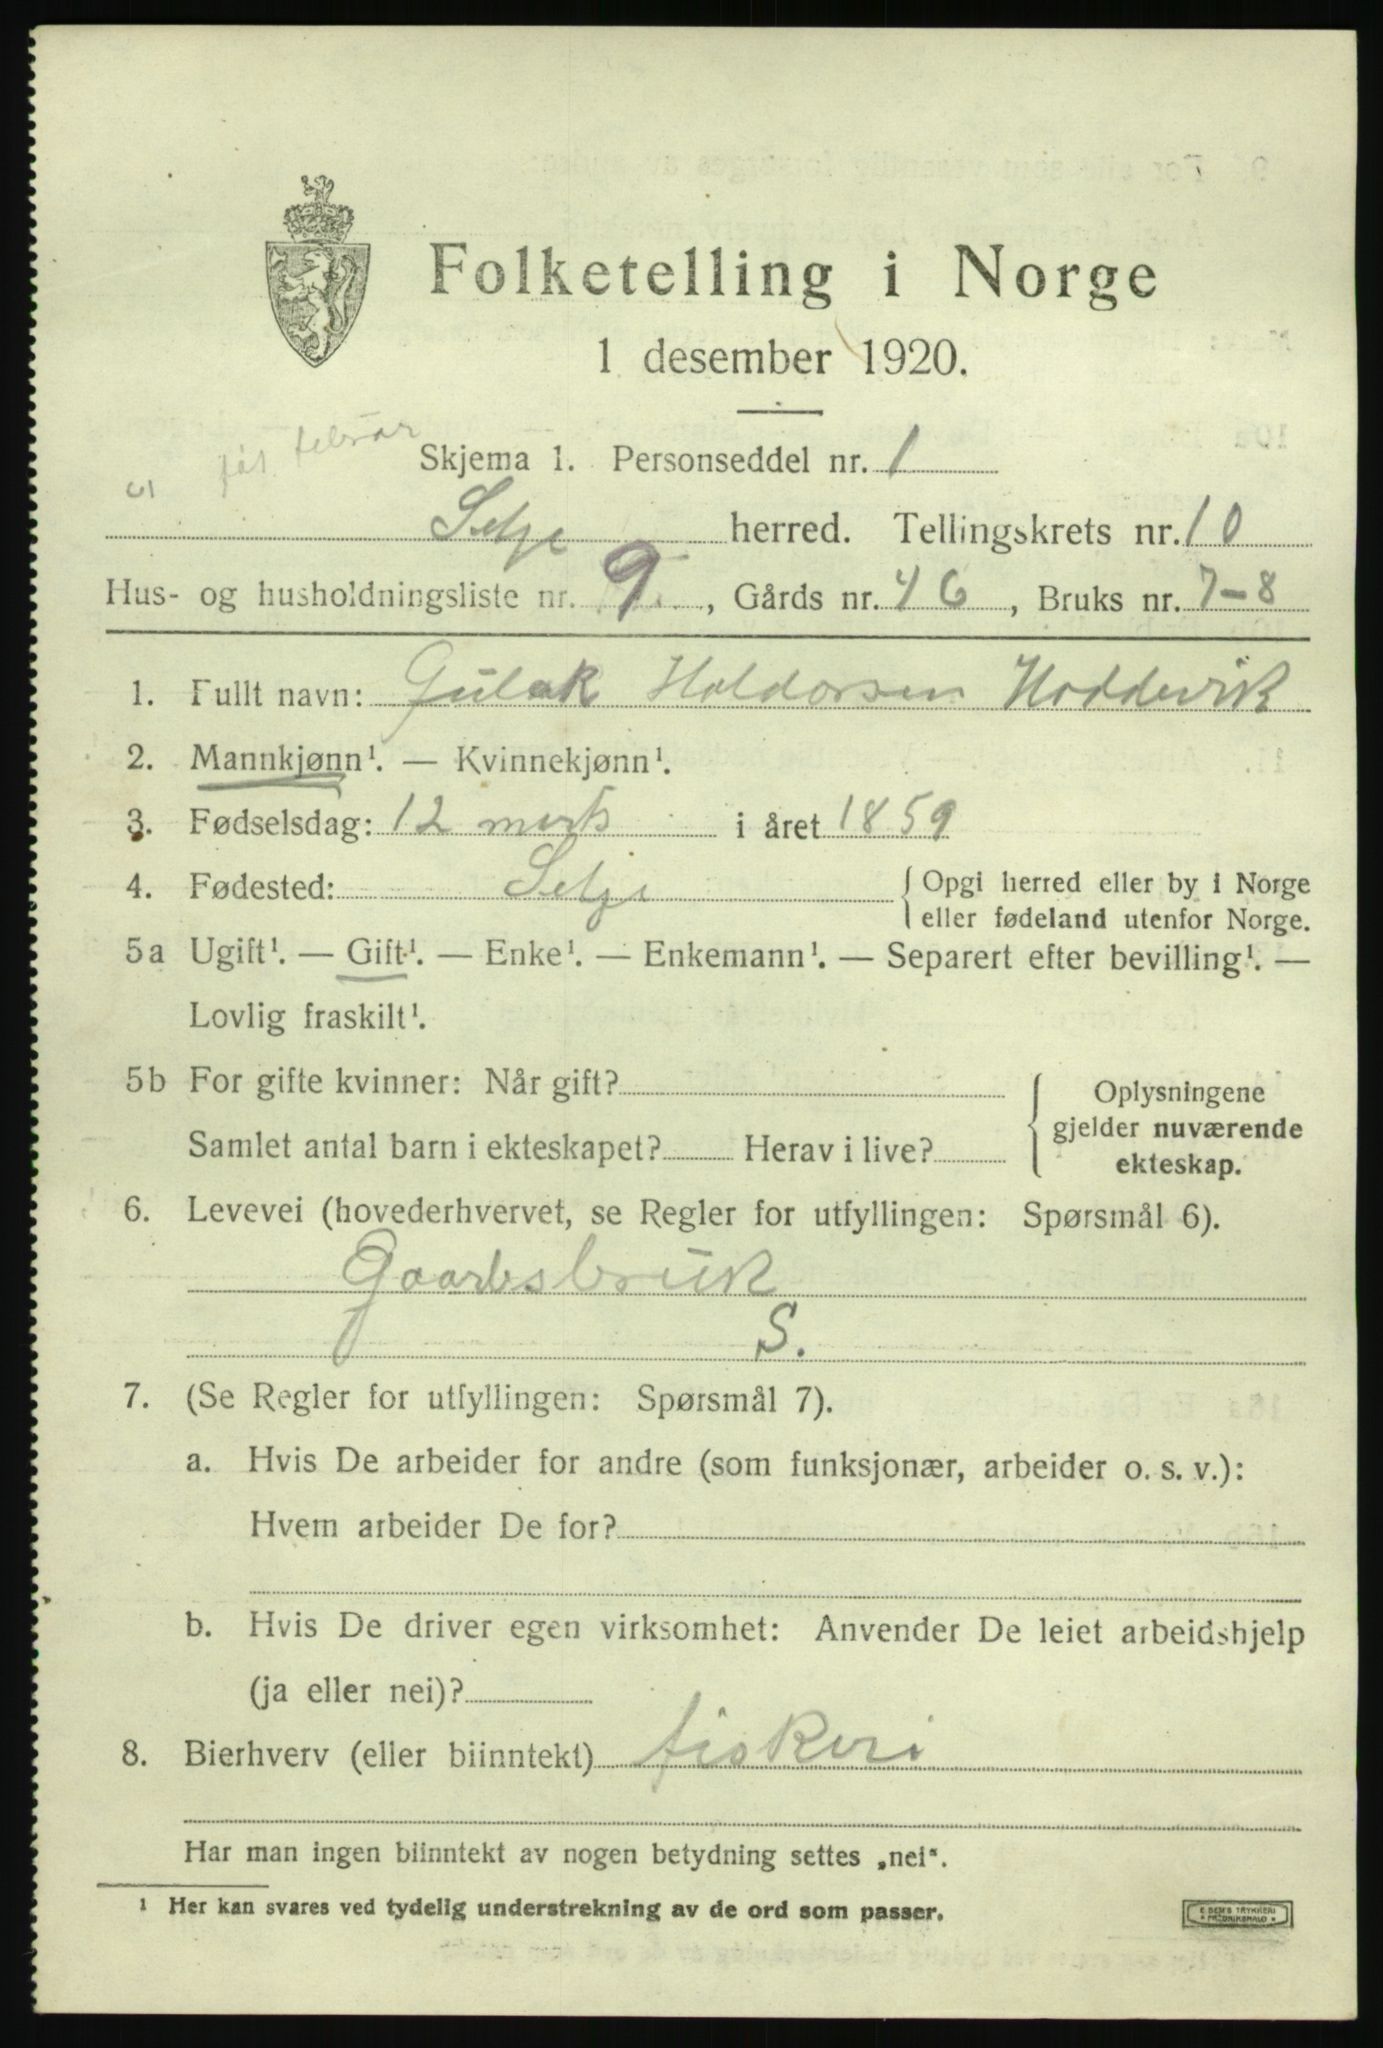 Folketelling i Norge
1 desember 1920.
Skjema 1. Personseddel nr. 1
Selje herred. Tellingskrets nr. 10
Hus- og husholdningsliste nr. 9, Gårds nr. 46, Bruks nr. 7-8
1. Fullt navn: Gulak Haldorsen Hoddevik
2. Mannkjønn¹. — Kvinnekjønn¹.
3. Fødselsdag: 12 marts i året 1859
4. Fødested: Selje {Opgi herred eller by i Norge
eller fødeland utenfor Norge.
5a Ugift¹. — Gift¹. — Enke¹. — Enkemann¹. — Separert efter bevilling¹. —
Lovlig fraskilt¹.
5b For gifte kvinner: Når gift? {Oplysningene
gjelder nuværende
Samlet antal barn i ekteskapet? Herav i live?
ekteskap.
6. Levevei (hovederhvervet, se Regler for utfyllingen: Spørsmål 6).
Gaardsbruk
S.
7. (Se Regler for utfyllingen: Spørsmål 7).
a. Hvis De arbeider for andre (som funksjonær, arbeider o. s. v.):
Hvem arbeider De for?
b. Hvis De driver egen virksomhet: Anvender De leiet arbeidshjelp
(ja eller nei)?
8. Bierhverv (eller biinntekt) fiskeri
Har man ingen biinntekt av nogen betydning settes „nei“.
¹ Her kan svares ved tydelig understrekning av de ord som passer.